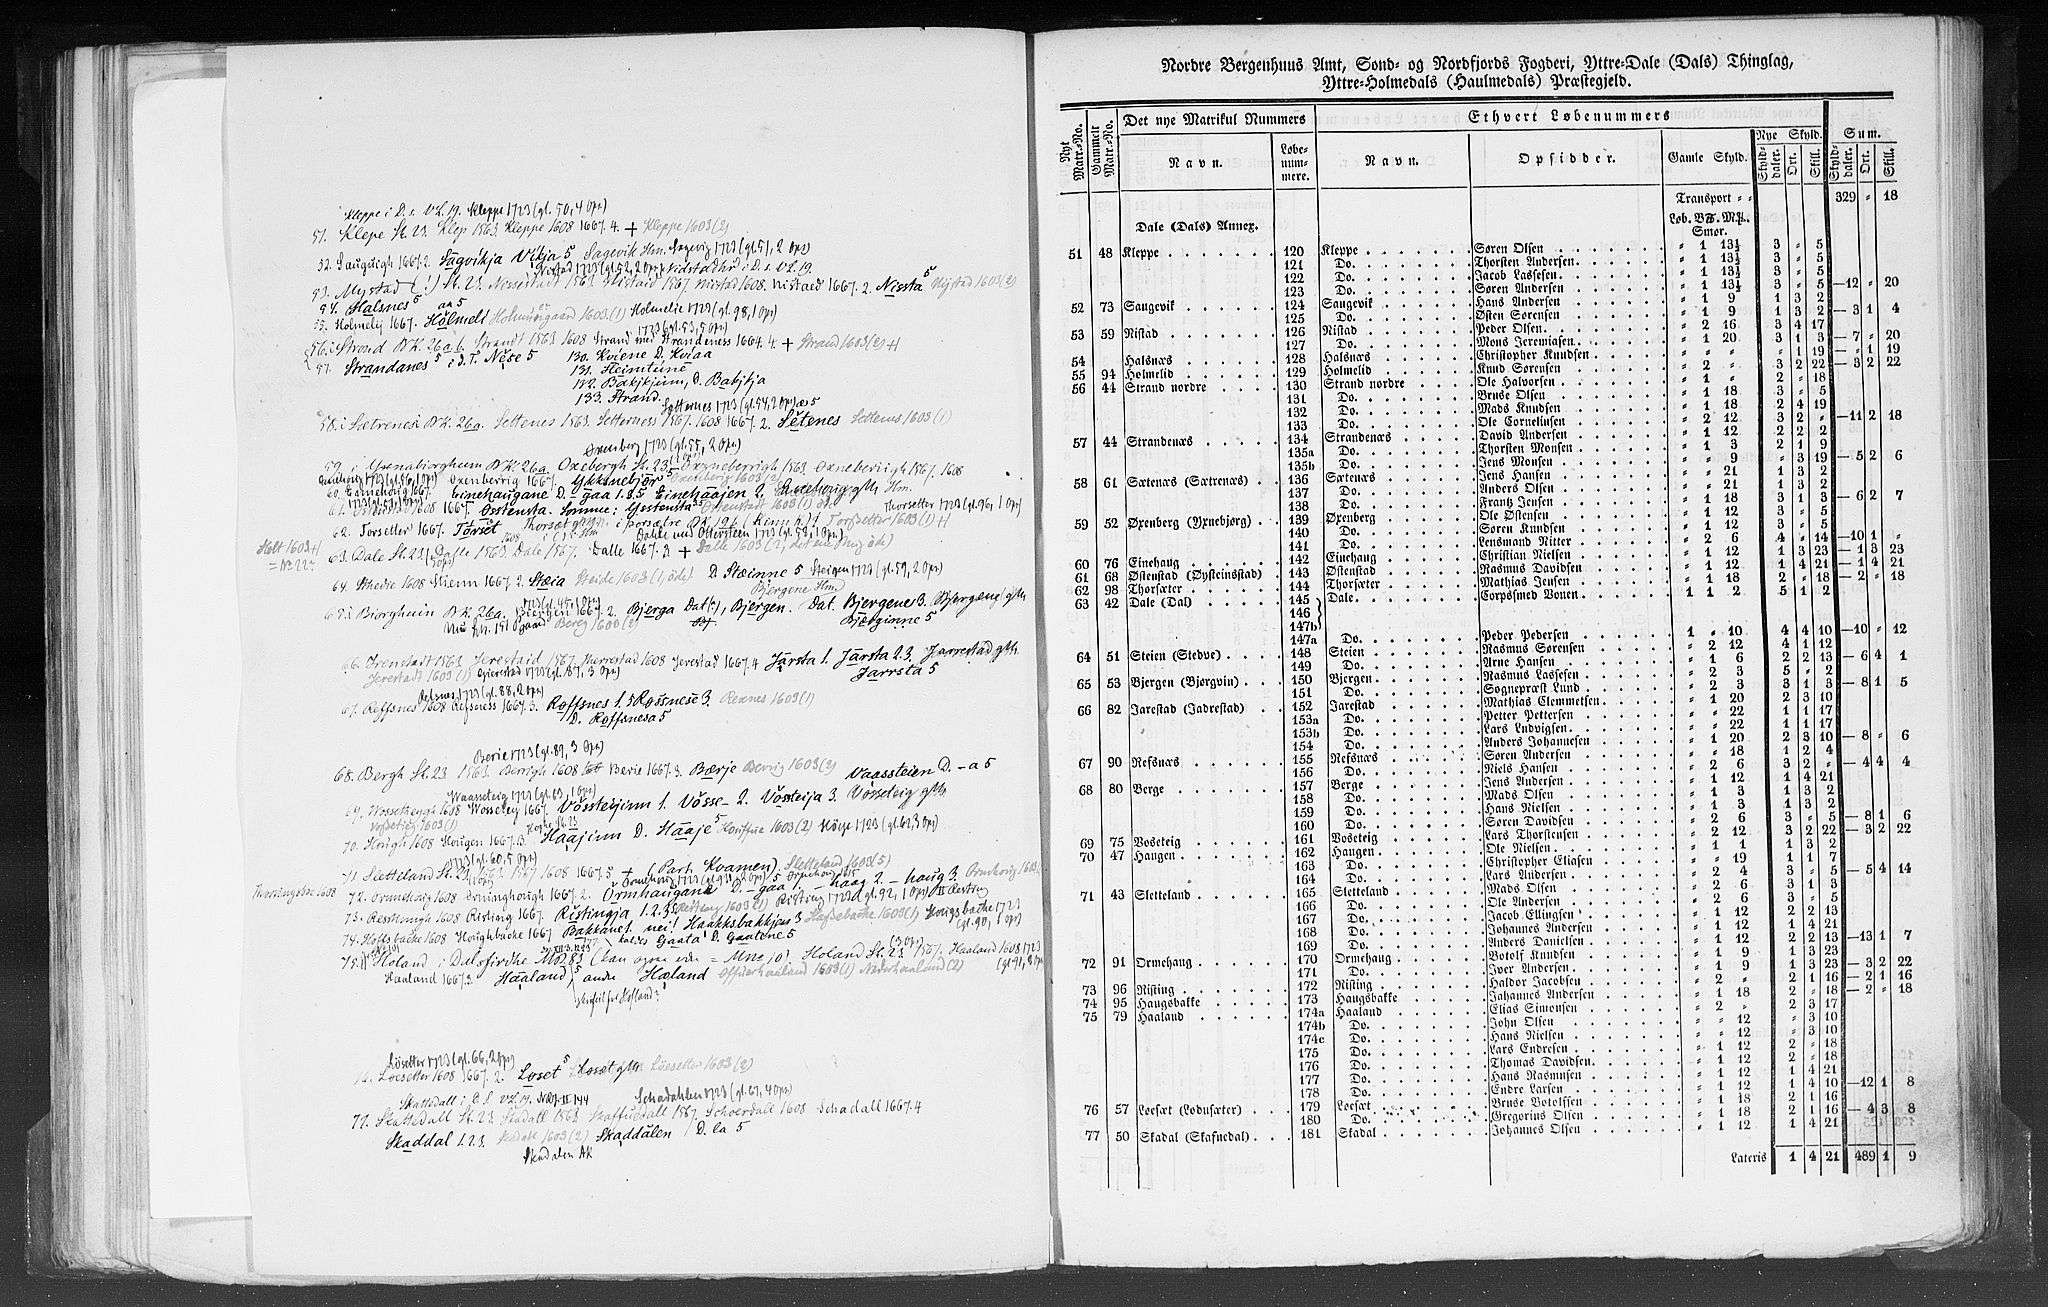 Kleppe i D. s. VL. 19. Kleppe 1723 (gl. 50, 4 Opr)
51. Klepe St. 23. Klep 1563. Kleppe 1608 1667. 4. + Kleppe 1603 (2)
52. Sauguigh 1667. 2. Sagvikja Vikja 5 Sagevik Hm. Sagevig 1723 (gl. 51, 2 Opr)
Nistad 1723 (gl. 52, 2 Opr) Nidstadhr i D. s. VL. 19.
53. Mystad (?) St. 23. Nessestadt 1563 Nistaid 1567 Nistad 1608. Nistaed 1667. 2. Nissta 5 Nystad 1603 (2)
54. Halsnes 5
55. Holmelij 1667. Holmelt an 5 Holmunsgaard 1603 (1) Holmelie 1723 (gl. 98, 1 Opr)
1723 (gl. 53, 5 Opr)
56. i Strond BK. 26a b. Strandt 1563 1608 Strand med Strandeness 1667. 4 + Strand 1603 (2) +
57. Strandanes 5 i D. T. Nese 5
130. Kviene D. Kviaa
131. Heimtune
132. Bakjkjum, D. Bakjkja
133. Strand.
Setternes 1723 (gl. 54, 2 Opr) æs 5
58. i Sætrenesi BK. 26a. Settenes 1563. Setterness 1567. 1608 1667. 2. Setenes Settenes 1603 (1)
Oxenberg 1723 (gl. 55, 2 Opr)
59. i Yxnabiorghum BK. 26a. Oxebergh St. 23 Oxneberrigh 1563. Oxneberiigh 1567. 1608
Oxenberrig 1667. Ykksnebjør 5 Oxenberg 1603 (2)
60. Einehoug 1667. Einehaugane D. - gaa 1. 3. 5 Einehaajen 2. Einehoug gtth Hm.
61. 1608 1667. Osstensta. Somme: Ysstensta 5 Østenstadt 1603 (1) öde Thorsetter 1723 (gl. 96, 1 Opr)
62. Torsetter 1667. Torset Thorsæt gtth i þorsætre BK. 19b (Kinn h.)? Torssetter 1603 (1) +
Dahle med Otterstein 1723 (gl. 58, 1 Opr)
Holt 1603 +
= No 22?
63. Dale St. 23. Dalle 1563. Dale 1567. Dalle 1667. 3 + Dalle 1603 (2, det ene Prgj öde)
64. Stedie 1608 Stienn 1667. 2. Stæia Steide 1603 (1, öde). D. Stæinne 5 Steigen 1723 (gl. 59, 2 Opr)
Bjergene Hm.
65. i Biorghuin BK. 26a. Biergen 1667. 2. Bjerga Dat. (?), Bjergen. Dat. Bjergene 3. Bjergæne gtth
Bjærginne 5
66. Irenstadt 1563 Jerestaid 1567 Jharrestad 1608 Jerestad 1667. 4 Jarsta 1. Jarsta 2. 3. Jarrestad gtth.
Jerestadt 1603 (1) Gierestad 1723 (gl. 187, 3 Opr) Jarrsta 5
Refsnes 1723 (gl. 88, 2 Opr)
67. Reffsnes 1608 Refsness 1667. 3. Roffsnes 1. 5 Rossnese 3. Rexnes 1603 (1)
D. Roffsnesa 5
Berie 1723 (gl. 89, 3 Opr)
68. Bergh St. 23 1563. Berrigh 1608 Berie 1667. 3. Bærje Berrig 1603 (2) Vaassteien D. - a 5
Waasseteig 1723 (gl. 63, 1 Opr)
69. Wossethengh 1608 Wosseteg 1667. Vossteijinn 1. Vosse- 2. Vossteija 3. Vosseteig gtth
Vossetieg 1603 (1)
70. Hough 1608 Hougen 1667. 3. Haajinn D. Haaje 5 Houffue 1603 (2) Höige 1723 (gl. 62, 3 Opr)
1723 (gl. 60, 5 Opr)
71. Sletteland St. 23. 1563 1567 1608 1667. 5 + (Part. Kvamen) Sletteland 1603 (5)
Thorningsbre 1608
72. Ormehoug 1608 Orninghough 1667. 2. Ormhaugane D. - gaa 1 - haag 2. - haug 3. Ormhoug 1603
73. Resthough 1608 Ristinig 1667. Ristingja 1. 2. 3. 5 Retteng 1603 (1) Risting 1723 (gl. 92, 1 Opr)
74. Hoffsbacke 1608 Houghbacke 1667. Bakkane 1. nei! Haakksbakkjæn 3 Hoffsebacke 1603 (1) Hougsbacke 1723
(gl. 90, 1 Opr)
177 kaldes Gaata D. Gaatene 5
75. Holand i Dalsfirdhe (kan ogsaa være = Mnr 10). Holand St. 23 1567. Haaland 1608 1723
Haaland 1667. 3. Haaland 5, andre Hæland Offuerhaaland 1603 (1) Nederhaaland (2) (gl. 91, 8 Opr)
Løsetter 1723 (gl. 66, 2 Opr)
76. Loesetter 1608 1667. 2. Loset 5 Losæt gtth Løesetter 1603 (2)
Skattedall i D. s. VL. 19. NRJ II 144 Schadahlen 1723 (gl. 67, 4 Opr)
77. Skattedal St. 23. Skadall 1563 Skaffuedall 1567. Schoerdall 1608. Schadall 1667. 4
Skaddal 1. 2. 3. Skedall 1603 (2) Skaddalen D. la 5
Skudalen AK
Nordre Bergenhuus Amt, Sond- og Nordfjords Fogderi, Yttre-Dale (Dals) Thinglag,
Yttre-Holmedals (Haulmedals) Præstegjeld.
Nyt Matr.-No. Gammelt Matr.-No. Det nye Matrikul Nummers Ethvert Løbenummers
Navn. Løbe-nummere. Navn. Opsidder. Gamle Skyld. Nye Skyld. Sum.
Skylddaler. Ort. Skill. Skylddaler. Ort. Skill.
Transport = = 329 = 18
Dale (Dals) Annex. Løb. B℔. Mk. Smør.
51 48 Kleppe 120 Kleppe Søren Olsen = 1 13½ 3 = 5
121 Do. Thorsten Andersen = 1 13½ 3 = 5
122 Do. Jacob Lassesen = 1 13½ 3 = 5
123 Do. Søren Andersen = 1 13½ 3 = 5 —12 = 20
52 73 Saugevik 124 Saugevik Hans Andersen = 1 9 1 3 2
125 Do. Østen Sørensen = 1 9 1 3 2 — 3 1 4
53 59 Nistad 126 Nistad Peder Olsen = 2 16 3 4 17
127 Do. Mons Jeremiasen = 1 20 3 1 3 — 7 = 20
54 Halsnæs 128 Halsnæs Christopher Knudsen = = = = 1 19 — = 1 19
55 94 Holmelid 129 Holmelid Knud Sørensen = 2 = 3 2 22 — 3 2 22
56 44 Strand nordre 130 Strand nordre Ole Halvorsen = 1 = 2 = 18
131 Do. Bruse Olsen = 1 18 3 = 5
132 Do. Mads Knudsen = 1 18 2 4 19
133 Do. Ole Corneliusen = 2 12 3 2 = —11 2 18
57 44 Strandenæs 134 Strandenæs David Andersen = 1 12 2 2 2
135a Do. Thorsten Monsen = 1 3 2 1 9
135b Do. Jens Monsen = = 9 = 3 19 — 5 2 6
58 61 Sætenæs (Sætrenæs) 136 Sætenæs Jens Hansen = = 21 1 3 2
137 Do. Anders Olsen = = 21 1 3 2
138 Do. Frantz Jensen = 1 18 3 1 3 — 6 2 7
59 52 Øxenberg (Yxnebjørg) 139 Øxenberg Ole Østensen = 1 12 3 = 5
140 Do. Søren Knudsen = 1 12 3 = 5
141 Do. Lensmand Ritter = 2 6 4 = 14 —10 1 =
60 76 Einehaug 142 Einehaug Christian Nielsen = 1 12 1 3 23 — 1 3 23
61 68 Østenstad (Øysteinsstad) 143 Østenstad Rasmus Davidsen = 1 12 1 4 21 — 1 4 21
62 98 Thorsæter 144 Thorsæter Mathias Jensen = 1 18 2 = 18 — 2 = 18
63 42 Dale (Dal) 145 Dale Corpsmed Vonen 1 1 2 5 1 2
146
147b
147a Do. Peder Pedersen 1 = 10 4 4 10 —10 = 12
64 51 Steien (Stedve) 148 Steien Rasmus Sørensen = 2 12 4 1 12
149 Do. Arne Hansen = 1 6 2 2 13 — 6 4 1
65 53 Bjergen (Bjørgvin) 150 Bjergen Rasmus Lassesen = 2 3 5 = 2
151 Do. Sognepræst Lund = 2 3 3 1 3 — 8 1 5
66 82 Jarestad (Jadrestad) 152 Jarestad Mathias Clemmetsen = 1 20 2 3 10
153a Do. Petter Pettersen = = 22 1 1 17
153b Do. Lars Ludvigsen = = 22 1 1 17
154 Do. Anders Johannesen = 1 20 2 3 10 — 8 = 6
67 90 Refsnæs 155 Refsnæs Søren Andersen = = 18 1 2 4
156 Do. Niels Hansen = 2 6 3 2 = — 4 4 4
68 80 Berge 157 Berge Jens Andersen = 1 12 1 4 21
158 Do. Mads Olsen = 1 3 1 3 2
159 Do. Hans Nielsen = 1 3 1 3 2
160 Do. Søren Davidsen = 2 6 3 = 5 — 8 1 6
69 75 Voseteig 161 Voseteig Lars Thorstensen = 2 12 3 2 22 — 3 2 22
70 47 Haugen 162 Haugen Ole Nielsen = 1 1 1 3 2
163 Do. Christopher Eliasen = = 19 1 1 7
164 Do. Lars Andersen = 2 4 3 = 5 — 5 4 14
71 43 Sletteland 165 Sletteland Mads Olsen = 2 6 3 1 3
166 Do. Ole Andersen = 2 6 3 = 5
167 Do. Jacob Ellingsen = 1 12 2 2 13
168 Do. Johannes Andersen = 1 12 1 4 21
169 Do. Anders Danielsen = 1 12 2 2 13 —13 1 7
72 91 Ormehaug 170 Ormehaug Botolf Knudsen = 1 9 1 3 23
171 Do. Iver Andersen = 1 9 1 3 23 — 3 2 22
73 96 Risting 172 Risting Haldor Jacobsen = 2 = 2 1 16 — 2 1 16
74 95 Haugsbakke 173 Haugsbakke Jahannes Andersen = 1 18 2 = 18 — 2 = 18
75 79 Haaland 174a Haaland Elias Simonsen = 2 = 2 3 17
174b Do. John Olsen = = 12 = 3 10
174c Do. Hans Nielsen = = 12 = 3 10
175 Do. Lars Endresen = 1 12 2 = 18
176 Do. Thomas Davidsen = 1 12 2 = 18
177 Do. Hans Rasmusen = 1 12 1 4 21
178 Do. Endre Larsen = 1 12 1 4 10 —12 1 8
76 57 Loesæt (Lodusæter) 179 Loesæt Bruse Botolfsen = 1 18 2 1 16
180 Do. Gregorius Olsen = 1 18 2 1 16 — 4 3 8
77 50 Skadal (Skafnedal) 181 Skadal Johannes Olsen = 1 12 1 4 21
Lateris 1 4 21 489 1 9